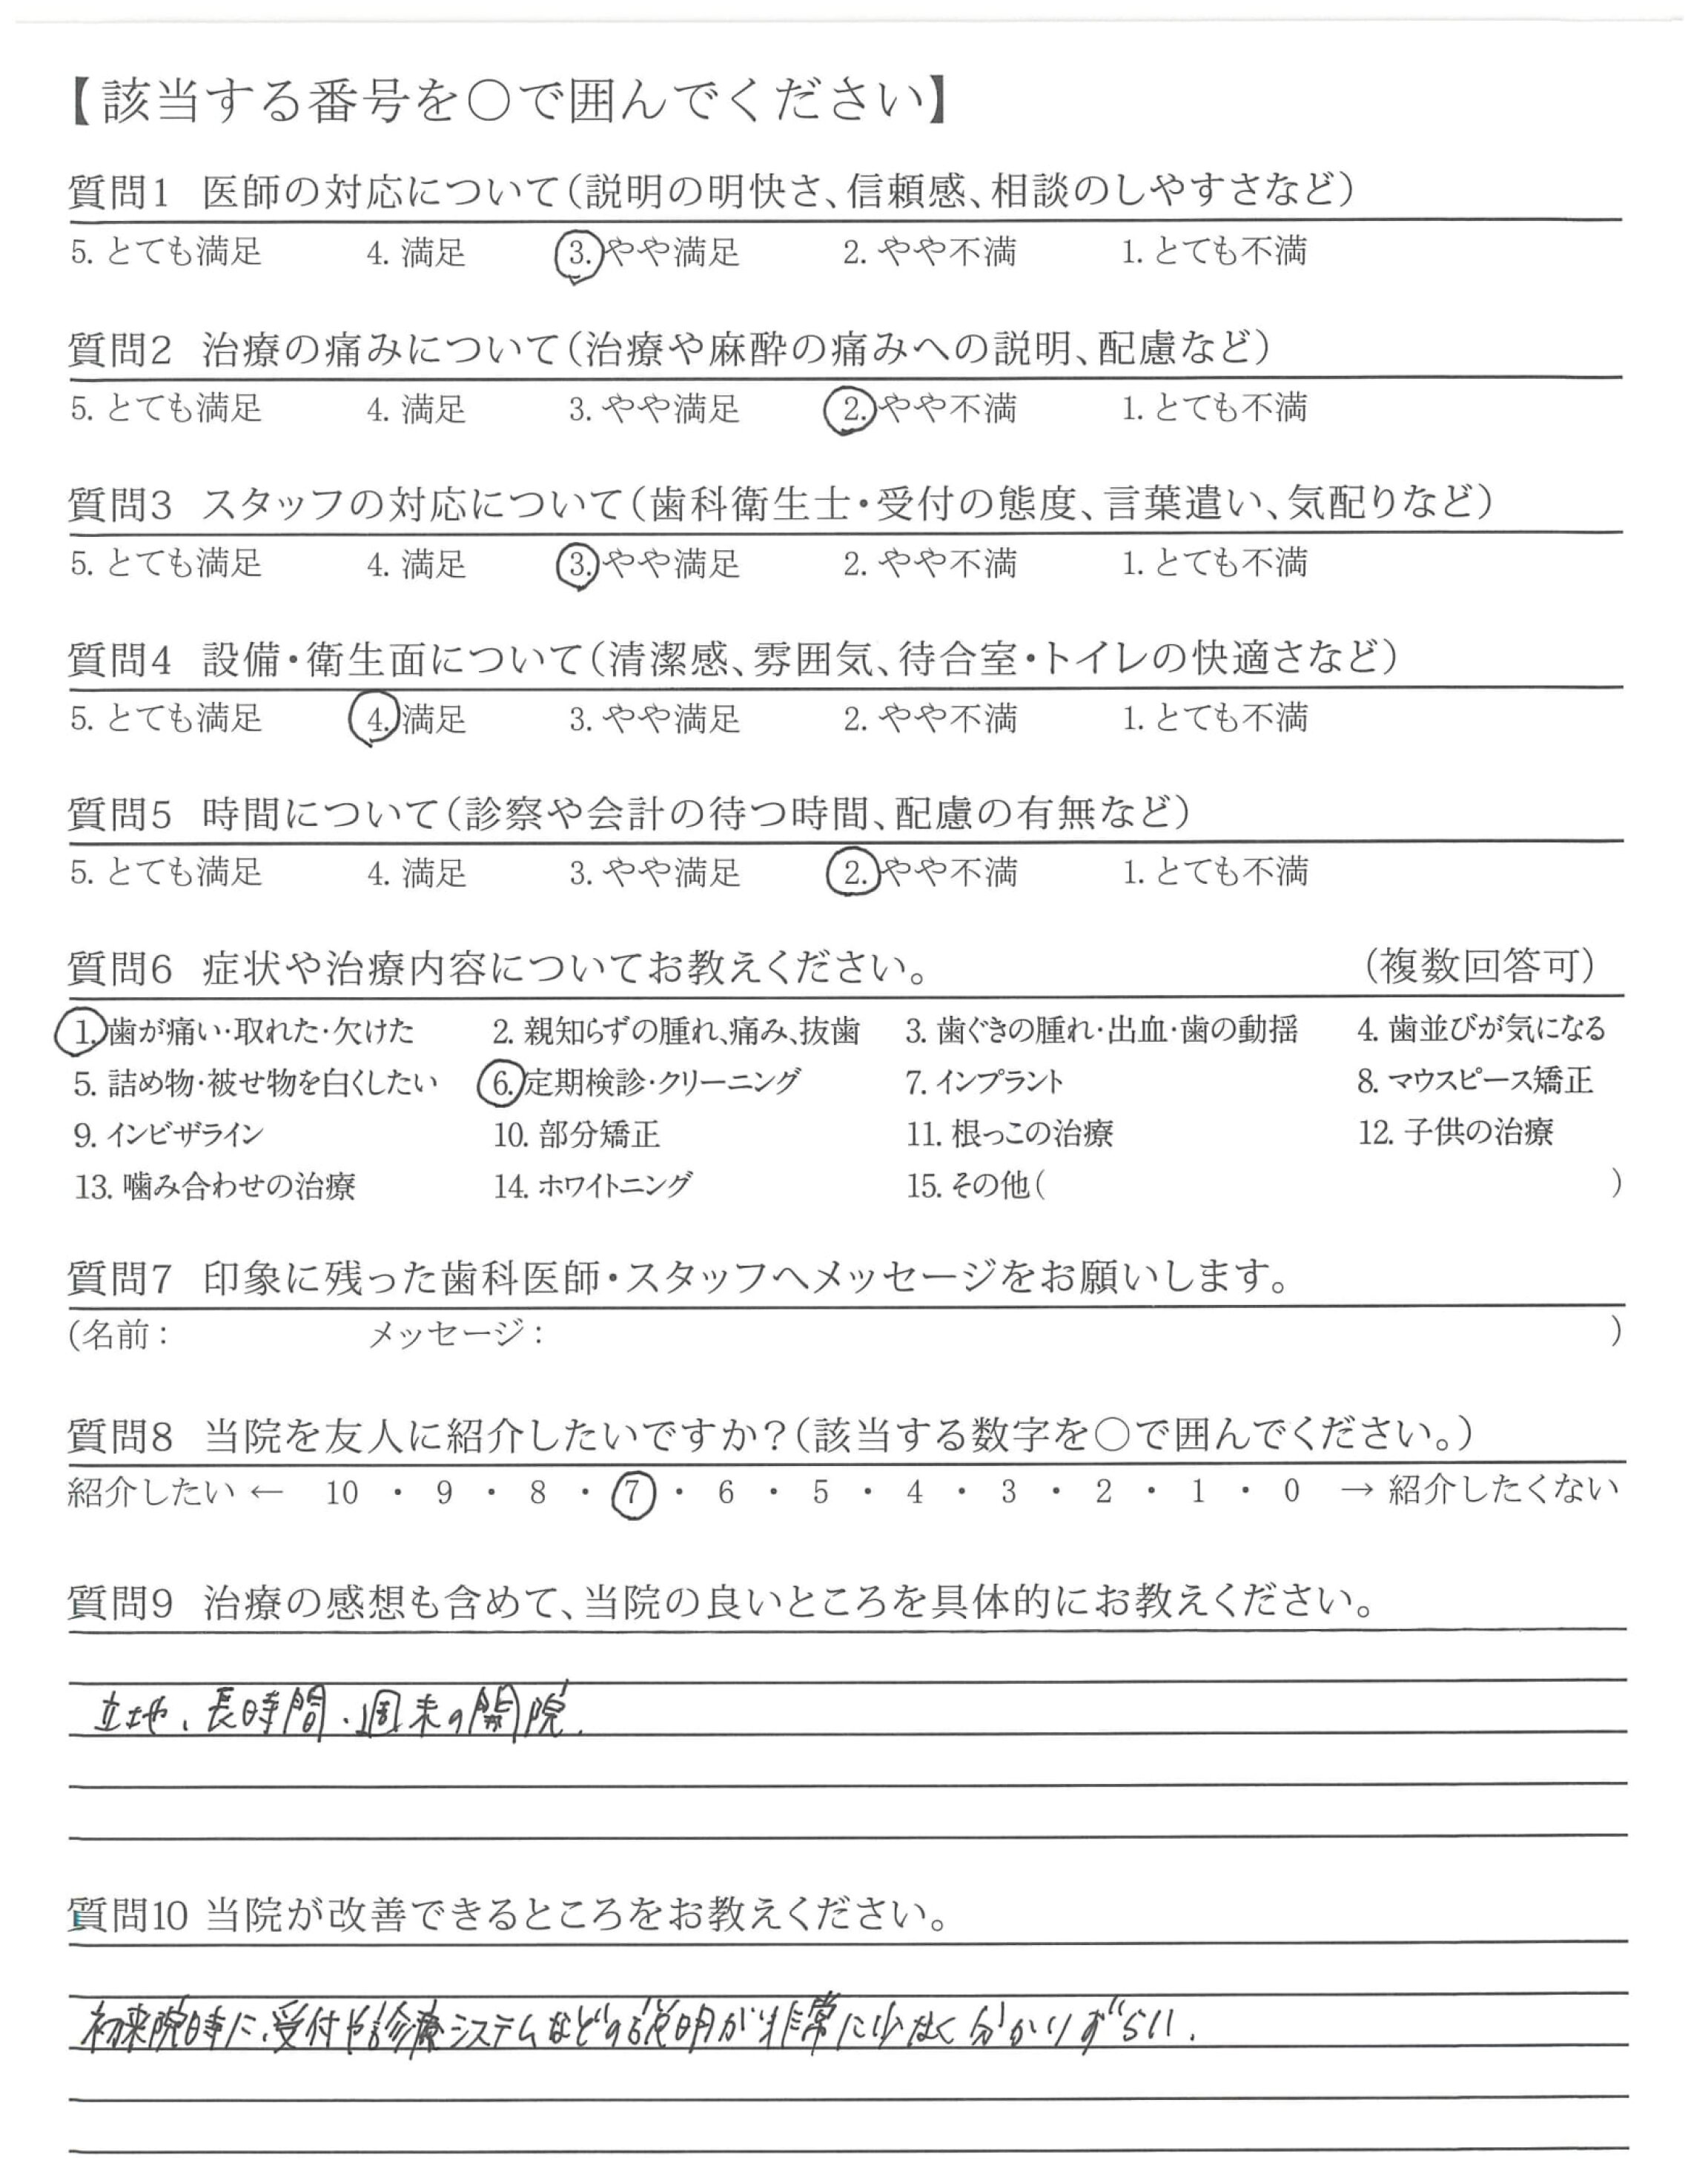 【該当する番号を〇で囲んでください】
質問1 医師の対応について(説明の明快さ、信頼感、相談のしやすさなど)
5. とても満足 4. 満足 3. やや満足 2. やや不満 1. とても不満
質問2 治療の痛みについて(治療や麻酔の痛みへの説明、配慮など)
5. とても満足 4. 満足 3. やや満足 2. やや不満 1. とても不満
質問3 スタッフの対応について(歯科衛生士・受付の態度、言葉遣い、気配りなど)
5. とても満足 4. 満足 3. やや満足 2. やや不満 1. とても不満
質問4 設備・衛生面について(清潔感、雰囲気、待合室・トイレの快適さなど)
5. とても満足 4. 満足 3. やや満足 2. やや不満 1. とても不満
質問5 時間について(診察や会計の待つ時間、配慮の有無など)
5. とても満足 4. 満足 3. やや満足 2. やや不満 1. とても不満
質問6 症状や治療内容についてお教えください。 (複数回答可)
1. 歯が痛い・取れた・欠けた 2. 親知らずの腫れ、痛み、抜歯 3. 歯ぐきの腫れ・出血・歯の動揺 4. 歯並びが気になる
5. 詰め物・被せ物を白くしたい 6. 定期検診・クリーニング 7. インプラント 8. マウスピース矯正
9. インビザライン 10. 部分矯正 11. 根っこの治療 12. 子供の治療
13. 噛み合わせの治療 14. ホワイトニング 15. その他( )
質問7 印象に残った歯科医師・スタッフへメッセージをお願いします。
(名前: メッセージ: )
質問8 当院を友人に紹介したいですか?(該当する数字を〇で囲んでください。)
紹介したい ← 10 ・ 9 ・ 8 ・ 7 ・ 6 ・ 5 ・ 4 ・ 3 ・ 2 ・ 1 ・ 0 → 紹介したくない
質問9 治療の感想も含めて、当院の良いところを具体的にお教えください。
立地、長時間・週末の開院.
質問10 当院が改善できるところをお教えください。
初来院時に、受付や診療システムなどの説明が非常に少なく分かりずらい.